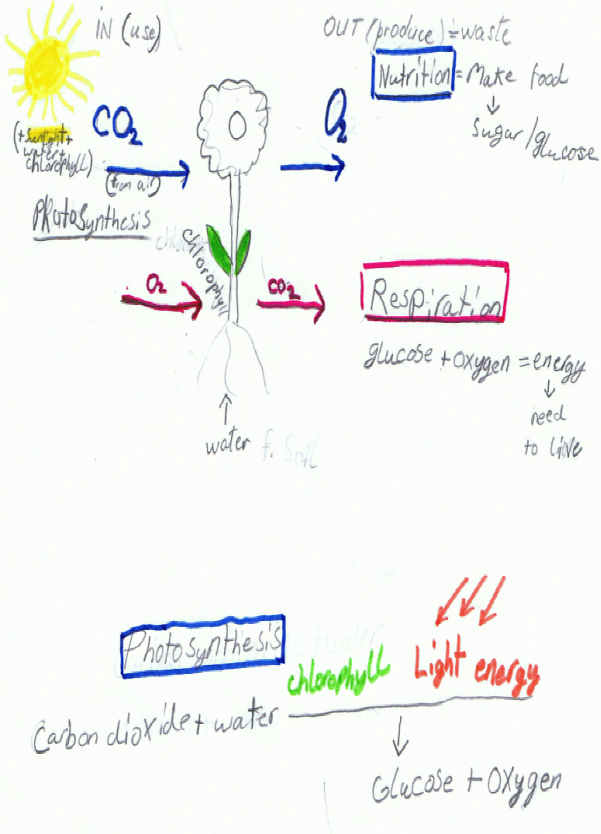 IN (use)
OUT (produce) = waste
Nutrition = Make food
sugar/glucose
CO2
O2
(+ sunlight +
water +
chlorophyll)
(from air)
Photosynthesis
chlorophyll
O2
CO2
Respiration
glucose + oxygen = energy
need
to live
water f. Soil
Photosynthesis
chlorophyll
Light energy
Carbon dioxide + water
Glucose + Oxygen